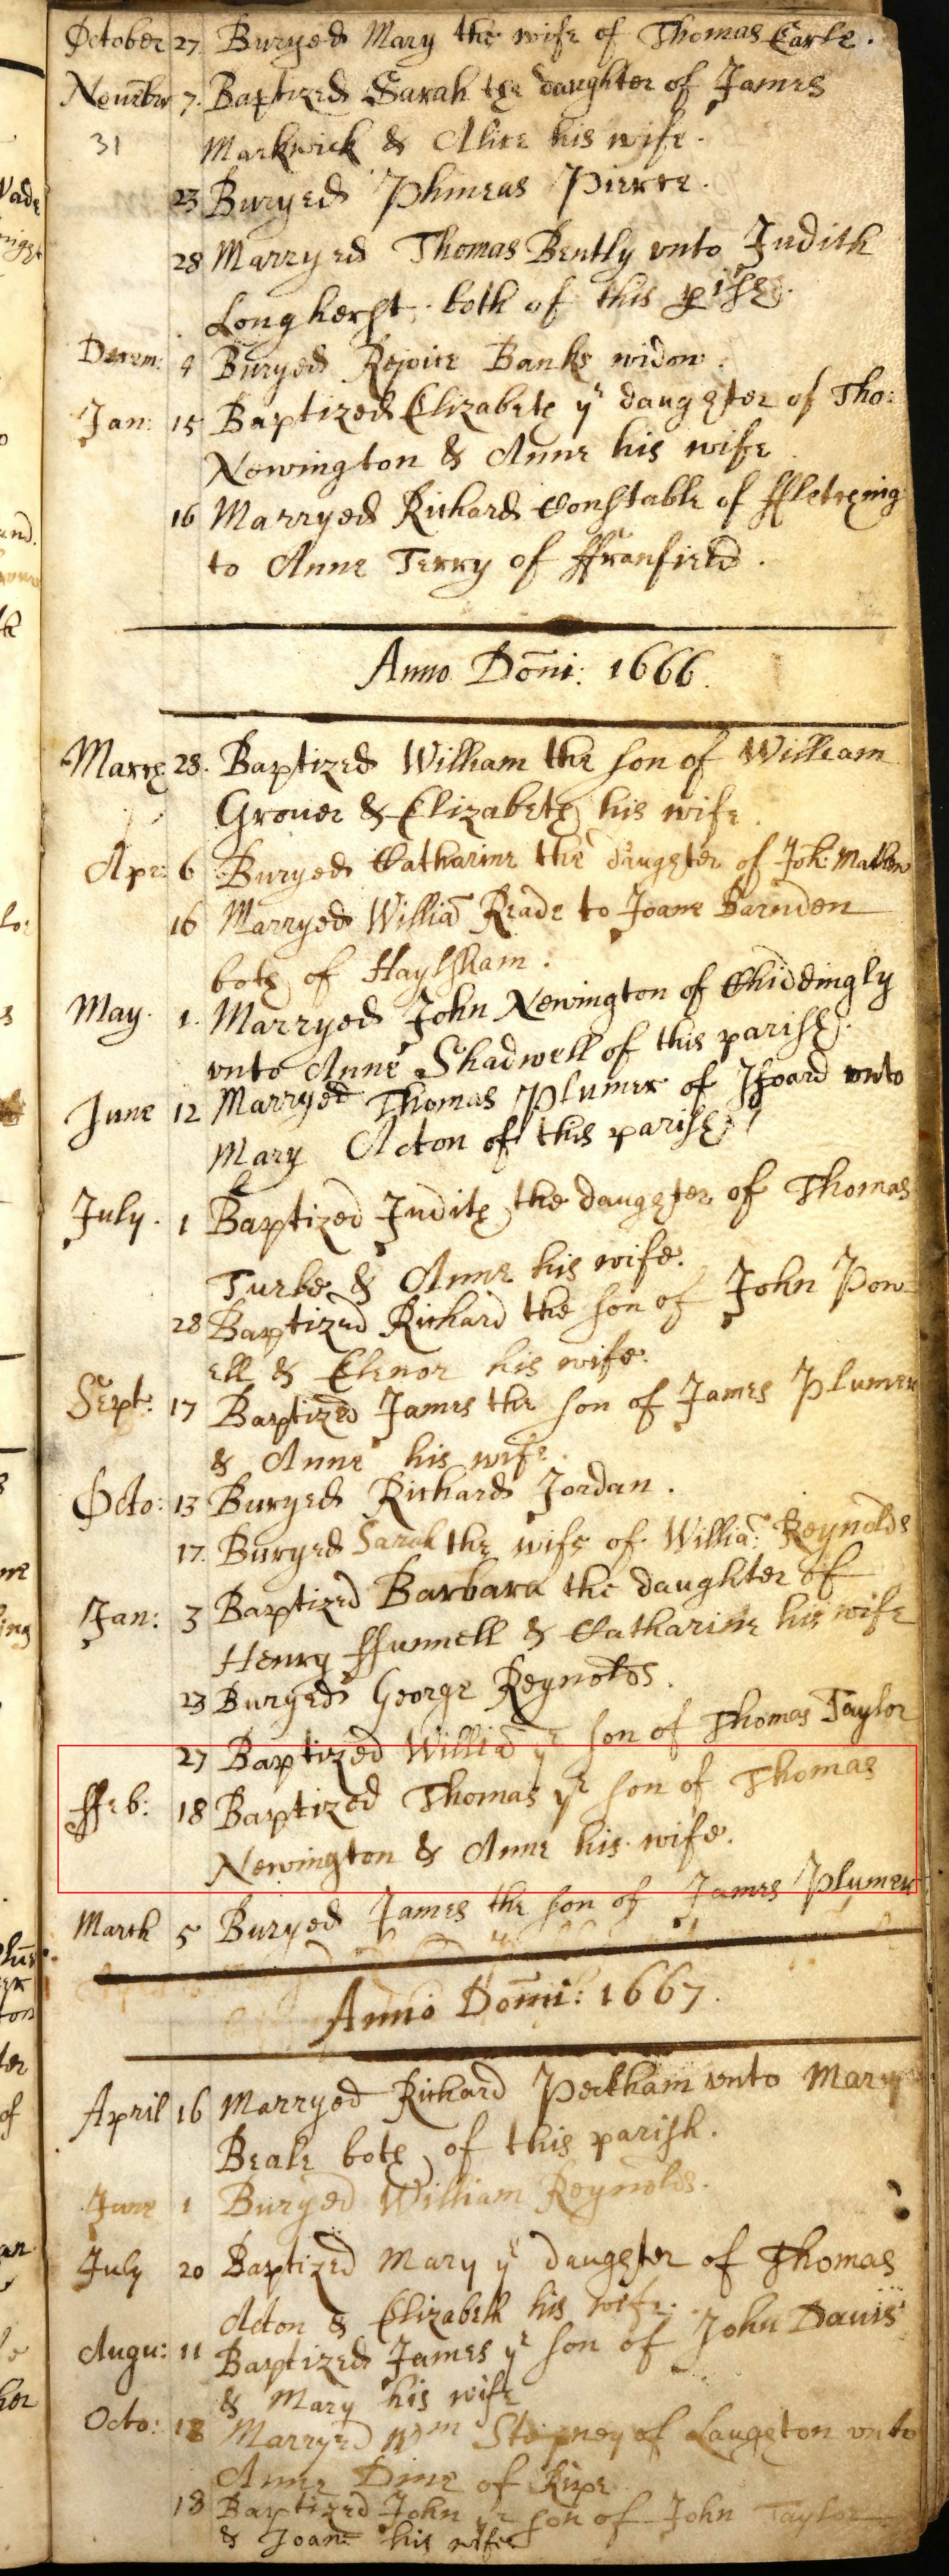 October 27 Buryed Mary the wife of Thomas Earle.
Nouēber 7. Baptized Sarah the daughter of James
31 Markwick & Alice his wife.
23 Buryed Phineas Pierce.
28 Marryed Thomas Bently vnto Judith
Longherst, both of this pish.
Decem: 4 Buryed Rejoice Banks widow.
Jan: 15 Baptized Elizabeth yᵉ daughter of Tho:
Newington & Anne his wife
16 Marryed Richard Constable of ffletching
to Anne Terry of ffranfield.
Anno Dōni: 1666.
March 28. Baptized William the son of William
Grouer & Elizabeth his wife.
Apr: 6 Buryed Catharine the daughter of Joh:
16 Marryed Williā Reade to Joane Barnden
both of Haylsham.
May. 1. Marryed John Newington of Chiddingly
vnto Anne Shadwell of this parish.
June 12 Marryed Thomas Plumer of Ifoard vnto
Mary Acton of this parish
July. 1 Baptized Judith the daughter of Thomas
Turke & Anne his wife.
28 Baptized Richard the son of John Pow-
ell & Elenor his wife.
Sept: 17 Baptized James the son of James Plumer
& Anne his wife.
Octo: 13 Buryed Richard Jordan.
17. Buryed Sarah the wife of Willia: Reynolds
Jan: 3 Baptized Barbara the daughter of
Henry ffunnell & Catharine his wife
23 Buryed George Reynolds.
27 Baptized Williā yᵉ son of Thomas Taylor
ffeb: 18 Baptized Thomas yᵉ son of Thomas
Newington & Anne his wife.
March 5 Buryed James the son of James Plumer
Anno Domī: 1667.
April 16 Marryed Richard Peckham vnto Mary
Beale both of this parish.
June 1 Buryed William Reynolds.
July 20 Baptized Mary yᵉ daughter of Thomas
Acton & Elizabeth his wife.
Augu: 11 Baptized James yᵉ son of John Dauis
& Mary his wife
Octo: 18 Marryed Wᵐ Stepney of Laughton vnto
Anne Dine of Ripe
18 Baptized John yᵉ son of John Taylor
& Joane his wife